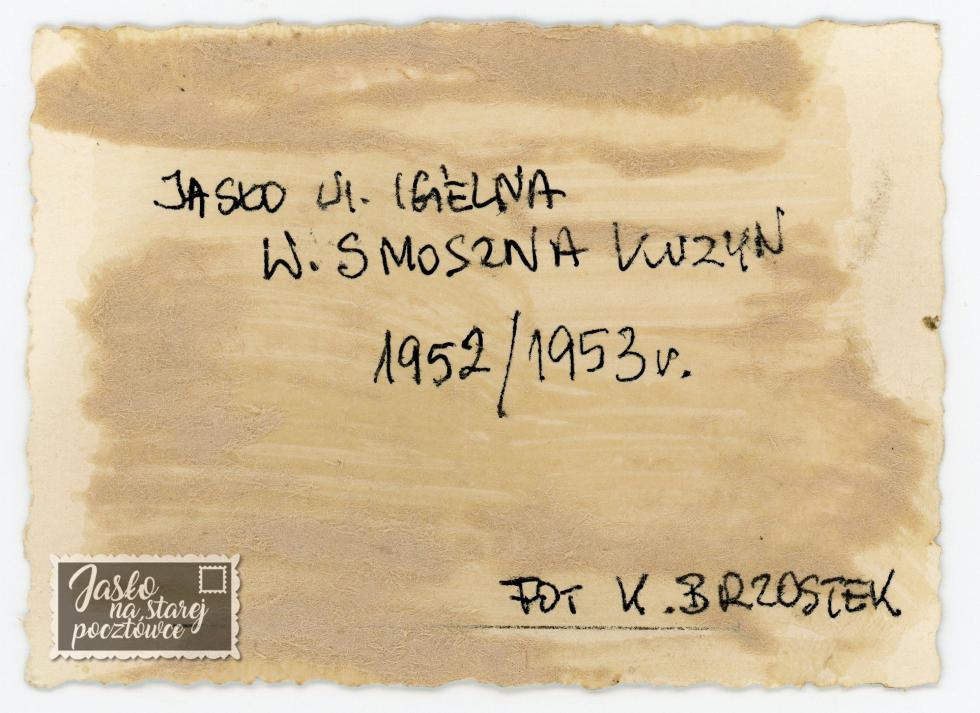 JASŁO Ul. IGIELNA
W. SMOSZNA KUZYN
1952/1953 r.
FOT K. BRZOSTEK
Jasło
na starej
pocztówce